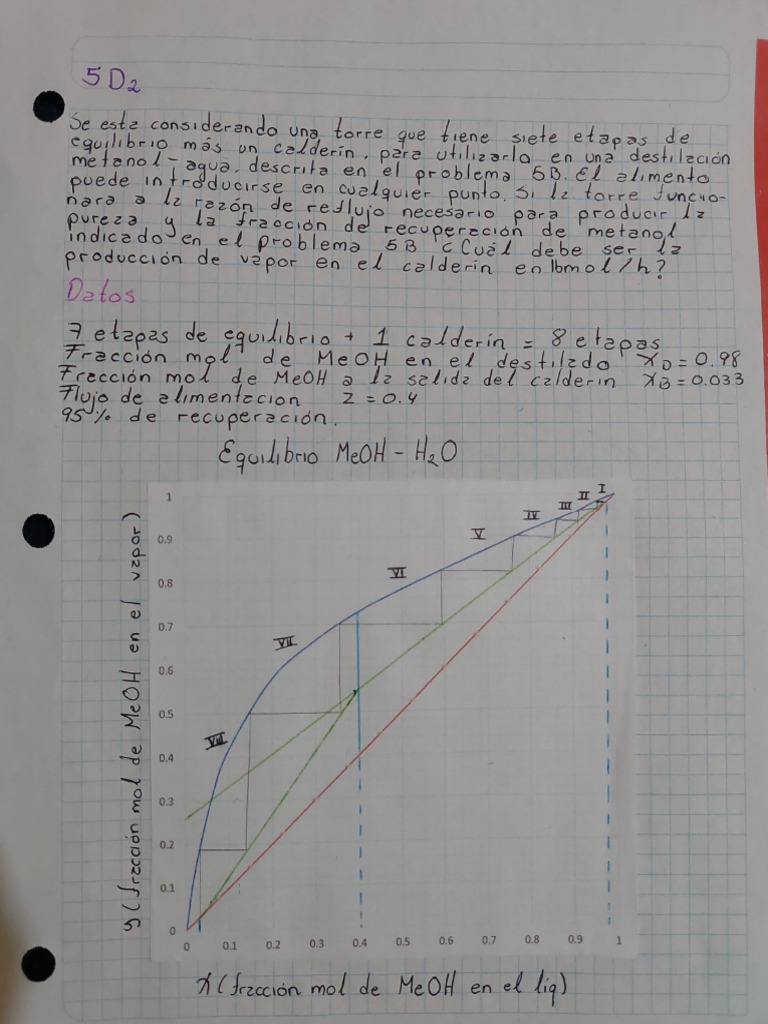 5D2
Se esta considerando una torre que tiene siete etapas de
equilibrio más un calderín, para utilizarla en una destilación
metanol-agua, descrita en el problema 5B. El alimento
puede introducirse en cualquier punto. Si la torre funcio-
nara a la razón de reflujo necesario para producir la
pureza y la fracción de recuperación de metanol
indicado en el problema 5B ¿Cuál debe ser la
producción de vapor en el calderin en lbmol/h?
Datos
7 etapas de equilibrio + 1 calderín = 8 etapas
Fracción mol de MeOH en el destilado XD = 0.98
Fracción mol de MeOH a la salida del calderin XB = 0.033
Flujo de alimentacion Z = 0.4
95% de recuperación.
Equilibrio MeOH - H2O
y (fracción mol de MeOH en el vapor)
1
0.9
0.8
0.7
0.6
0.5
0.4
0.3
0.2
0.1
0
I
II
III
IV
V
VI
VII
VIII
0 0.1 0.2 0.3 0.4 0.5 0.6 0.7 0.8 0.9 1
X (fracción mol de MeOH en el liq)